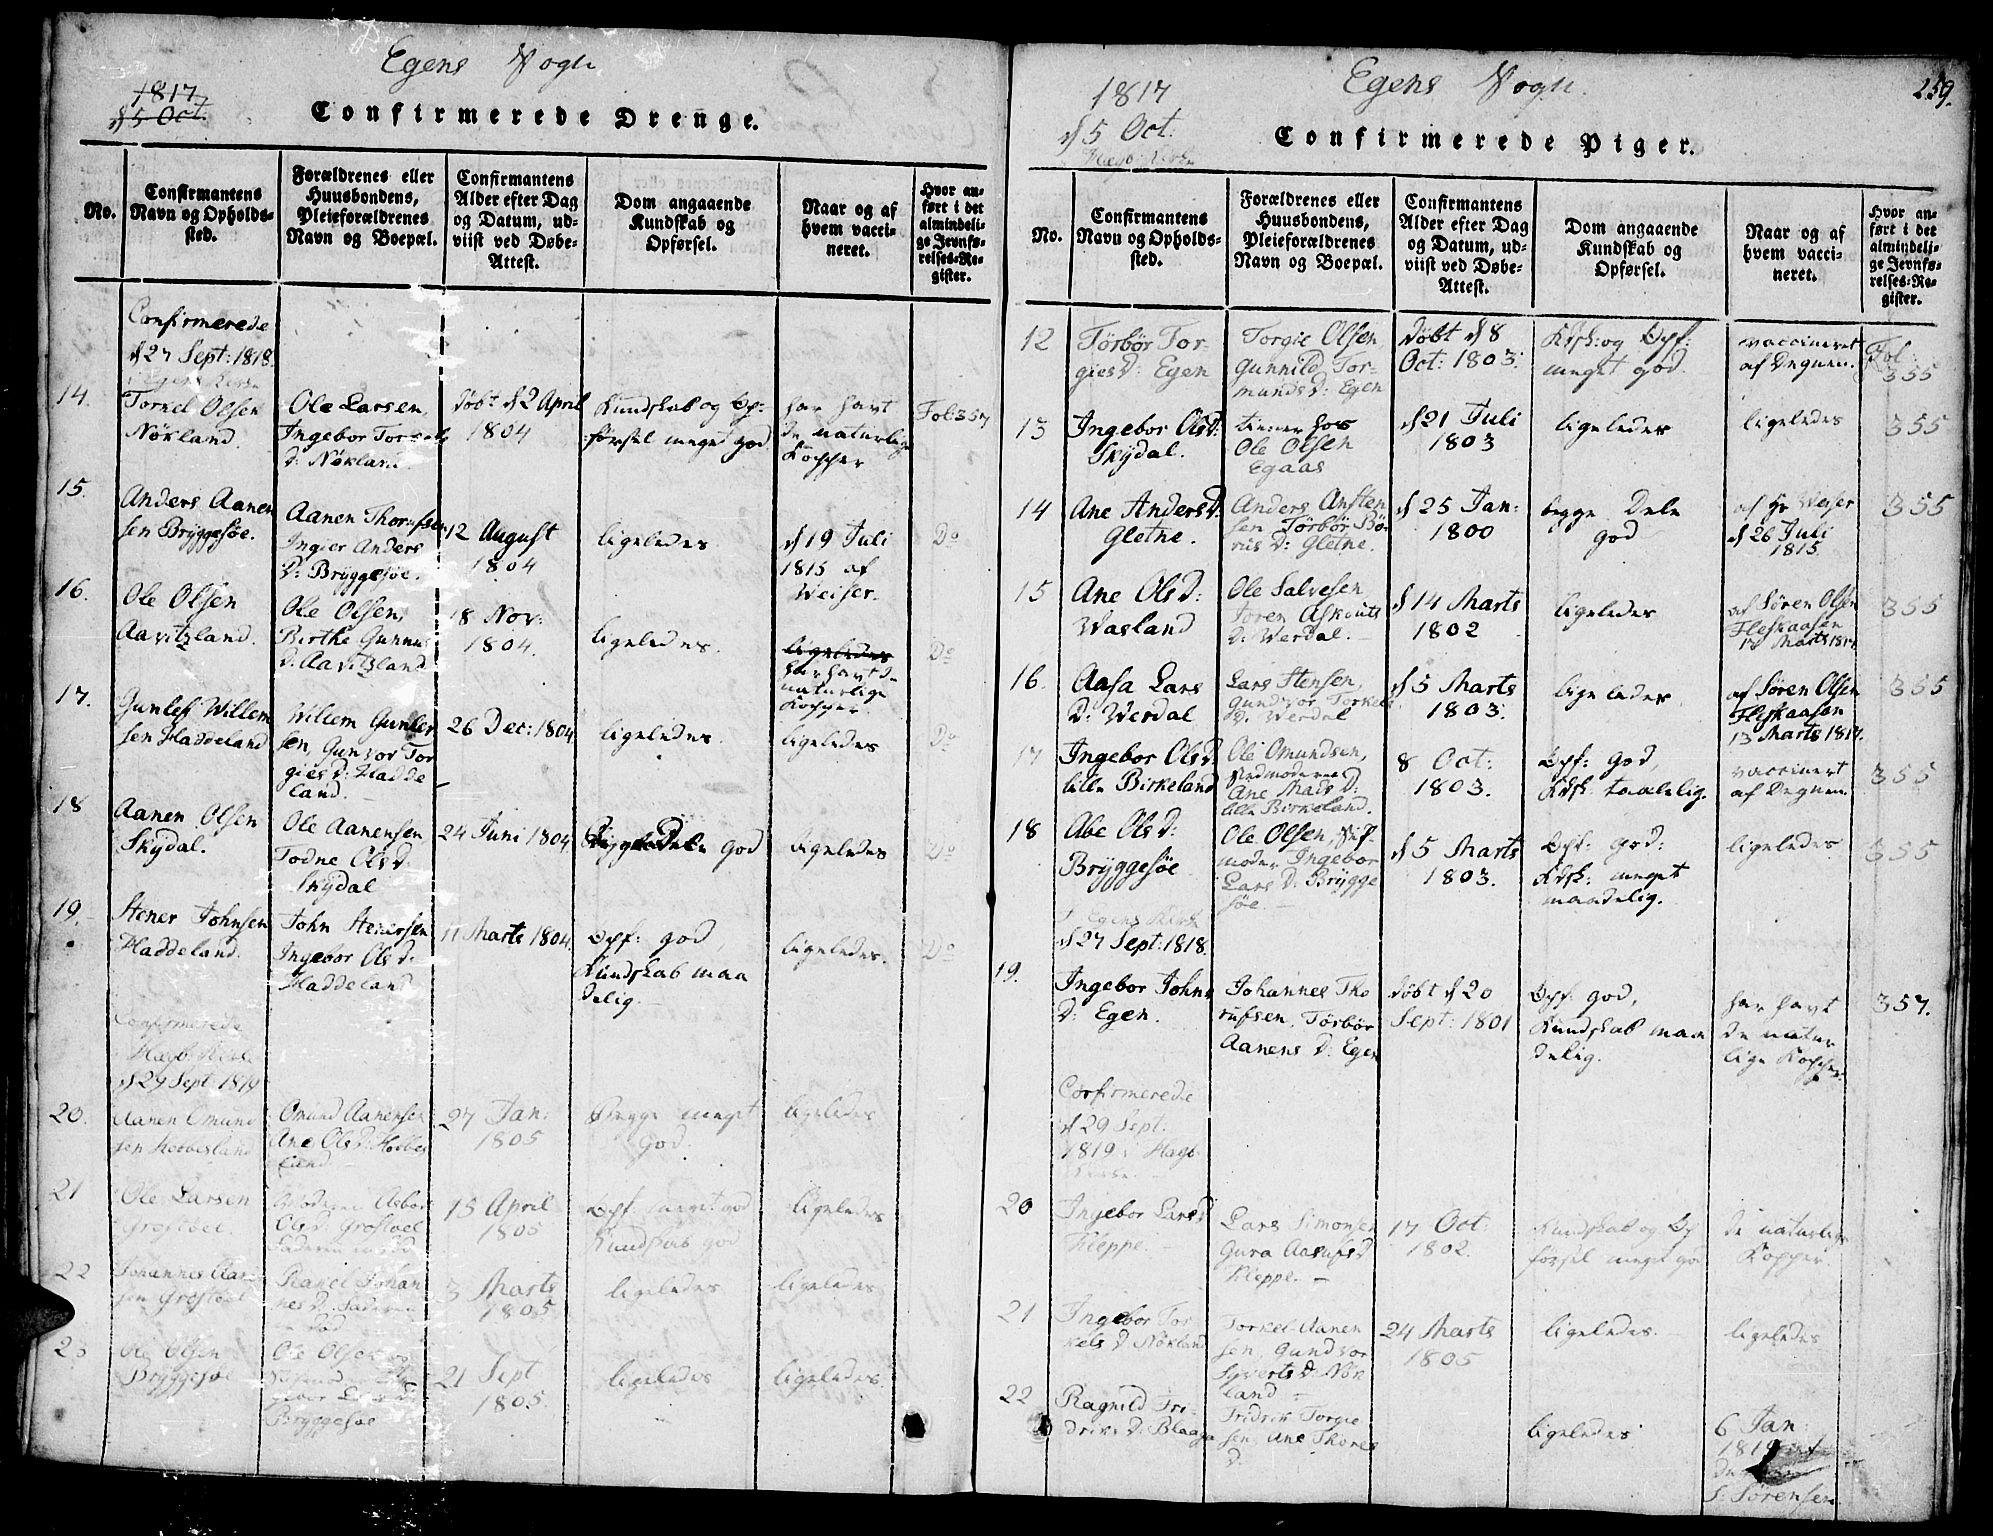 Egens Sogn
1817
d 5 Oct.
Confirmerede Drenge.
No.
Confirmantens
Navn og Opholds-
sted.
Forældrenes eller
Huusbondens,
Pleieforældrenes
Navn og Boepæl.
Confirmantens
Alder efter Dag
og Datum, ud-
viist ved Døbe-
Attest.
Dom angaaende
Kundskab og
Opførsel.
Naar og af
hvem vacci-
neret.
Hvor an-
ført i det
almindeli-
ge Jevnfø-
relses-Re-
gister.
Confirmerede
d 27 Sept: 1818.
i Egens Kirke
14.
Torkel Olsen
Nökland.
Ole Larsen,
Ingebor Torkels
D: Nökland.
döbt d 2 April
1804
Kundskab og Op-
försel meget god
har havt
de naturlige
Kopper
Fol: 357
15.
Anders Aanen
sen Bryggesöe.
Aanen Thorufsen
Ingier Anders
D: Bryggesöe.
12 August
1804
ligeledes
d 19 Juli
1815 af
Weiser.
Do
16.
Ole Olsen
Aavitzland.
Ole Olsen,
Birthe Gunnus
D: Aavitzland
18 Nov:
1804.
ligeledes.
ligeledes
har havt d-
naturlige
Kopper
Do
17.
Gunlef Willem
sen Haddeland
Willem Gunlef
sen, Gunvor Tor
gies D: Hadde
land.
26 Dec: 1804
ligeledes.
ligeledes
Do
18
Aanen Olsen
Skydal.
Ole Aanensen
Todne Ols D:
Skydal
24 Juni 1804
Begge Dele god
ligeledes
Do
19.
Stener Johnsen
Haddeland.
John Stenersen
Ingebor Ols D:
Haddeland
11 Marts 1804.
Opf: god,
Kundskab maa
delig.
ligeledes.
Do
Confirmerede
Hægb. Kirke
d 29 Sept 1819
20.
Aanen Omund
sen Hobbesland
Omund Aanensen
Ane Ols D: Hobbes
land
27 Jan:
1805
Begge meget
god.
ligeledes
21
Ole Larsen
Grostöel.
Moderen Asbor
Ols D Grostöel
Faderen er död
15 April
1805
Opf: meget god
Kundskab god
ligeledes
22
Johannes Aa
sen Grostöel
Rakel Johan
nes D. Faderen
död
3 Marts
1805
ligeledes
ligeledes
23
Ole Olsen
Bryggesöe
Ole Olsen
gebor Lars D
Bryggesöe
21 Sept
1805.
ligeledes
ligeledes.
Egens Sogn.
259.
1817
d 5 Oct:
Hægb: Kirke
Confirmerede Piger.
No.
Confirmantens
Navn og Opholds-
sted.
Forældrenes eller
Huusbondens,
Pleieforældrenes
Navn og Boepæl.
Confirmantens
Alder efter Dag
og Datum, ud-
viist ved Døbe-
Attest.
Dom angaaende
Kundskab og
Opførsel.
Naar og af
hvem vacci-
neret.
Hvor an-
ført i det
almindeli-
ge Jevnfø-
relses-Re-
gister.
12
Törbör Tor-
gies D: Egen
Torgie Olsen,
Gunnild Tor-
munds D: Egen
döbt d 8
Oct: 1803.
Kdsk: og Opf:
meget god.
vaccineret
af Degnen.
Fol:
355
13
Ingebor Ols D:
Skydal.
tiener hos
Ole Olsen
Egaas
d 21 Juli
1803
ligeledes
ligeledes
355
14
Ane Anders D:
Gletne.
Anders Ansten
sen Törbör Bör
rus D: Gletne.
d 25 Jan:
1800
begge Dele
god
af Hr Weiser
d 26 Juli
1815
355
15
Ane Ols D:
Wasland
Ole Salvesen
Joren Askouts
D: Werdal.
d 14 Marts
1802
ligeledes
af Sören Olsen
Fleskaasen
13 Marts 1817
355
16.
Aasa Lars
D: Werdal
Lars Stensen,
Gundvor Torkels
D. Werdal
d 5 Marts
1803.
ligeledes
af Sören Olsen
Fleskaasen
13 Marts 1817.
355
17
Ingebor Ols D.
lille Birkeland
Ole Omundsen,
Stedmoderen
Ane Mads D:
lille Birkeland.
8 Oct:
1803.
Opf: god,
Kdsk: taalelig.
vaccinert
af Degnen.
355
18
Abe Ols D:
Bryggesöe
Ole Olsen, Stif-
moder Ingebor
Lars D: Brygge
söe.
d 5 Marts
1803.
Opf: god:
Kdsk: meget
maadelig.
ligeledes
355
i Egens Kirke
d 27 Sept: 1818.
19.
Ingebor Johns
D: Egen.
Johannes Tho
rufsen, Törbör
Aanens D: Egen
döbt d 20
Sept: 1801
Opf: god,
Kundskab maa
delig.
har havt
de natur
lige Kopper.
357.
Confirmerede
d 29 Sept:
1819 i Hægb.
Kirke.
20
Ingebor Lars D
Kleppe.
Lars Simonsen
Gura Aasufs D
Kleppe.
17 Oct:
1802.
Kundskab og Op
försel meget god
de naturlige
Kopper.
21
Ingebor Tor
kels D Nökland
Torkel Aanen
sen, Gundvor
Syverts D: Nök
land
24 Marts
1805
ligeledes.
ligeledes
22
Ragnild Fri-
driks D: Blaaga
Fridrik Torgie
sen, Ane Thores
D.
ligeledes
6 Jan:
1819 af
S: Sörensen